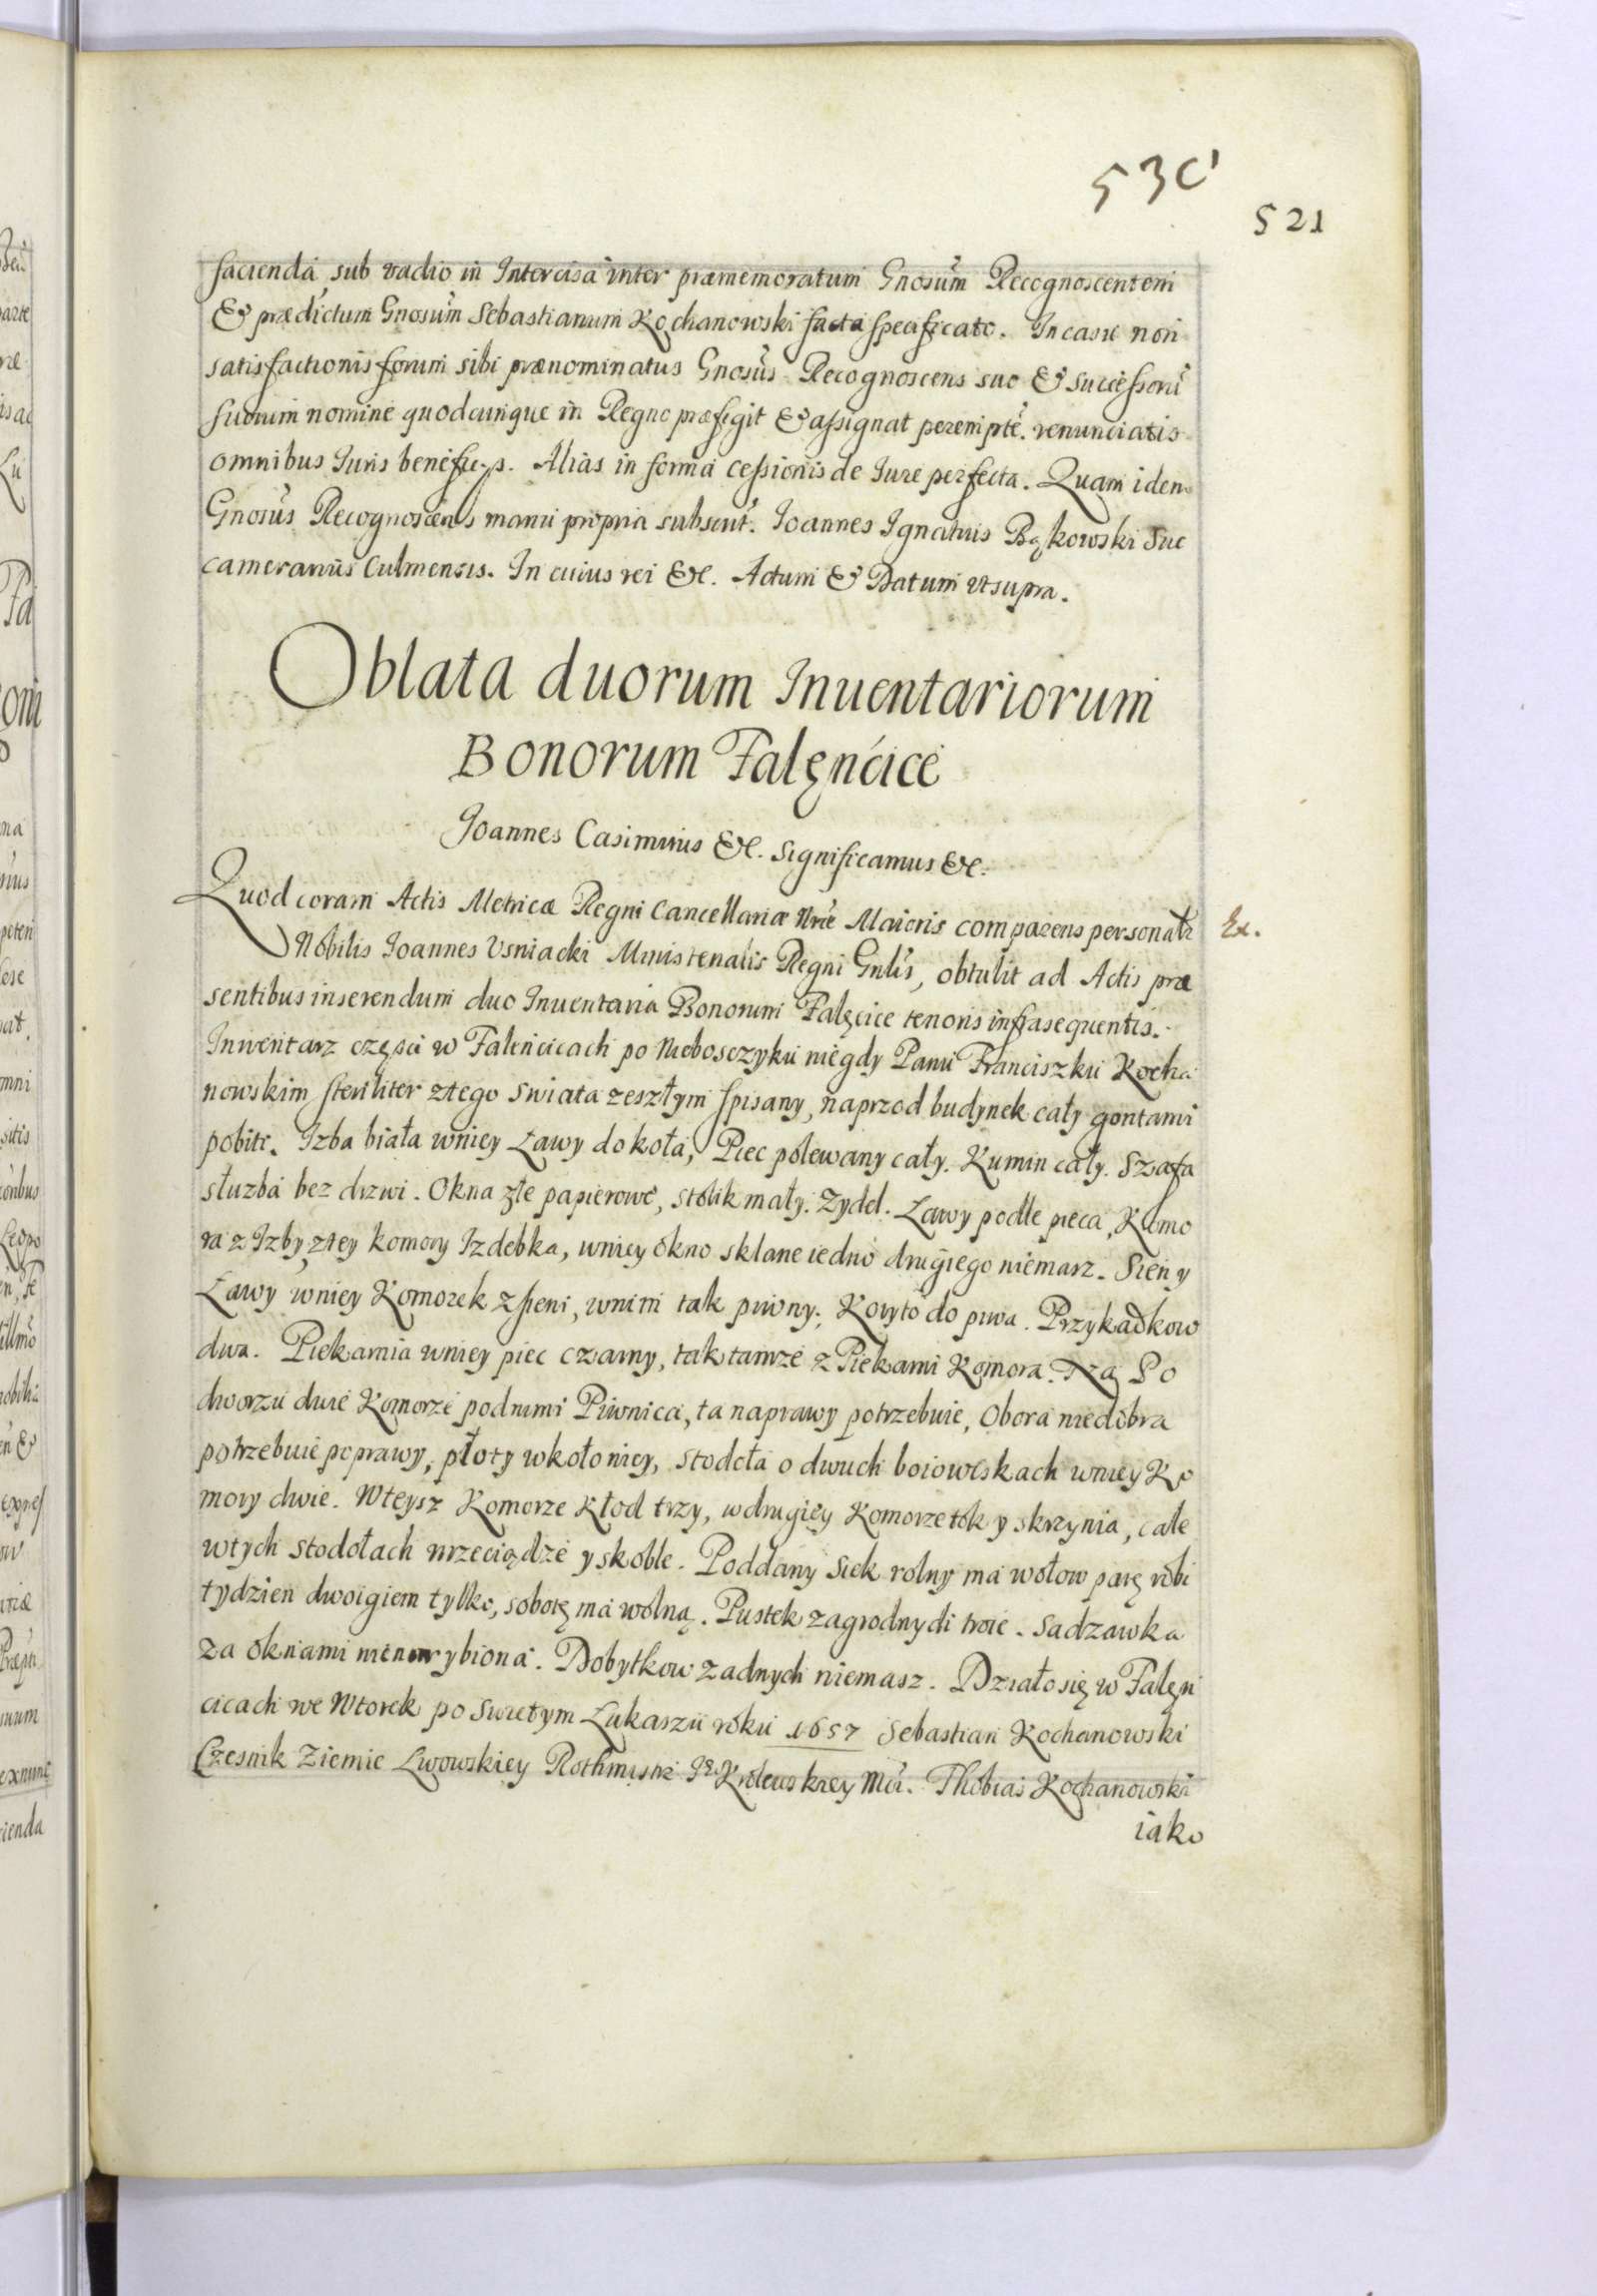 530
521
facienda, sub vadio in Intercisa inter praememoratum Gnosum Recognoscentem
& praedictum Gnosum Sebastianum Kochanowski facta specificato. In casu non
satisfactionis forum sibi praenominatus Gnosus Recognoscens suo & successorũ
suorum nomine quodcunque in Regno praefigit & assignat peremptẽ. renunciatis
omnibus Iuris beneficijs. Alias in forma cessionis de Iure perfecta. Quam idem
Gnosus Recognoscens manu propria subscrit. Ioannes Ignatius Bąkowski Suc
camerarius Culmensis. In cuius rei &c. Actum & Datum ut supra.
Oblata duorum Inuentariorum
Bonorum Falęncice
Joannes Casimirus &c. Significamus &c.
Quod coram Actis Metricæ Regni Cancellariæ Nræ Maioris comparens personalr
Ex.
Nobilis Joannes Vsniacki Ministerialis Regni Gnlis, obtulit ad Actis præ
sentibus inserendum duo Inuentaria Bonorum Falęcice tenoris infrasequentis.
Inwentarz części w Falencicach po Nieboszczyku niegdy Panu Franciszku Kocha
nowskim steriliter ztego swiata zeszłym spisany, naprzod budynek cały gontami
pobite. Izba biała wniey Ławy dokoła, Piec polewany cały. Kumin cały. Szafa
słuzba bez drzwi. Okna złe papierowe, stolik mały. Zydel. Ławy podle pieca, Komo
ra z Izby, ztey komory Izdebka, wniey okno sklane iedno drugiego niemasz. Sien y
Ławy wniey Komorek zsieni, wnim tak piwny. Koryto do piwa. Przykadkow
dwa. Piekarnia wniey piec czarny, tak tamze z Piekarni Komora. Na Po
dworzu dwie Komorze podnimi Piwnica, ta naprawy potrzebuie, Obora niedobra
potrzebuie poprawy, płoty wkoło niey, stodoła o dwuch boiowiskach wniey Ko
mory dwie. Wteysz Komorze Kłod trzy, wdrugiey Komorze tok y skrzynia, całe
wtych stodołach wrzeciądze y skoble. Poddany Siek rolny ma wołow parę robi
tydzien dwoigiem tylko, sobotę ma wolną. Pustek zagrodnych troie. Sadzawka
za oknami niezarybiona. Dobytkow zadnych niemasz. Działo się w Falęn
cicach we Wtorek po Swietym Lukaszu roku 1657 Sebastian Kochanowski
Czesnik Ziemie Lwowskiey Rothmistrz Krolewskiey Mci. Thobias Kochanowski
iako